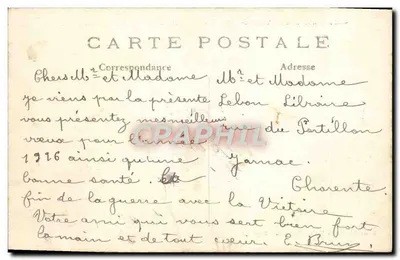 CARTE POSTALE
Correspondance
Adresse
Chers Mr et Madame
je viens par la présente
vous présentez mes meilleurs
vœux pour l'année
1916 ainsi qu'une
bonne santé. et
fin de la guerre avec la Victoire
Votre ami qui vous sert bien fort
la main et de tout cœur E. Brun
Mr et Madame
Lebon Libraire
rue du Portillon
Jarnac.
Charente
CPAPHIL